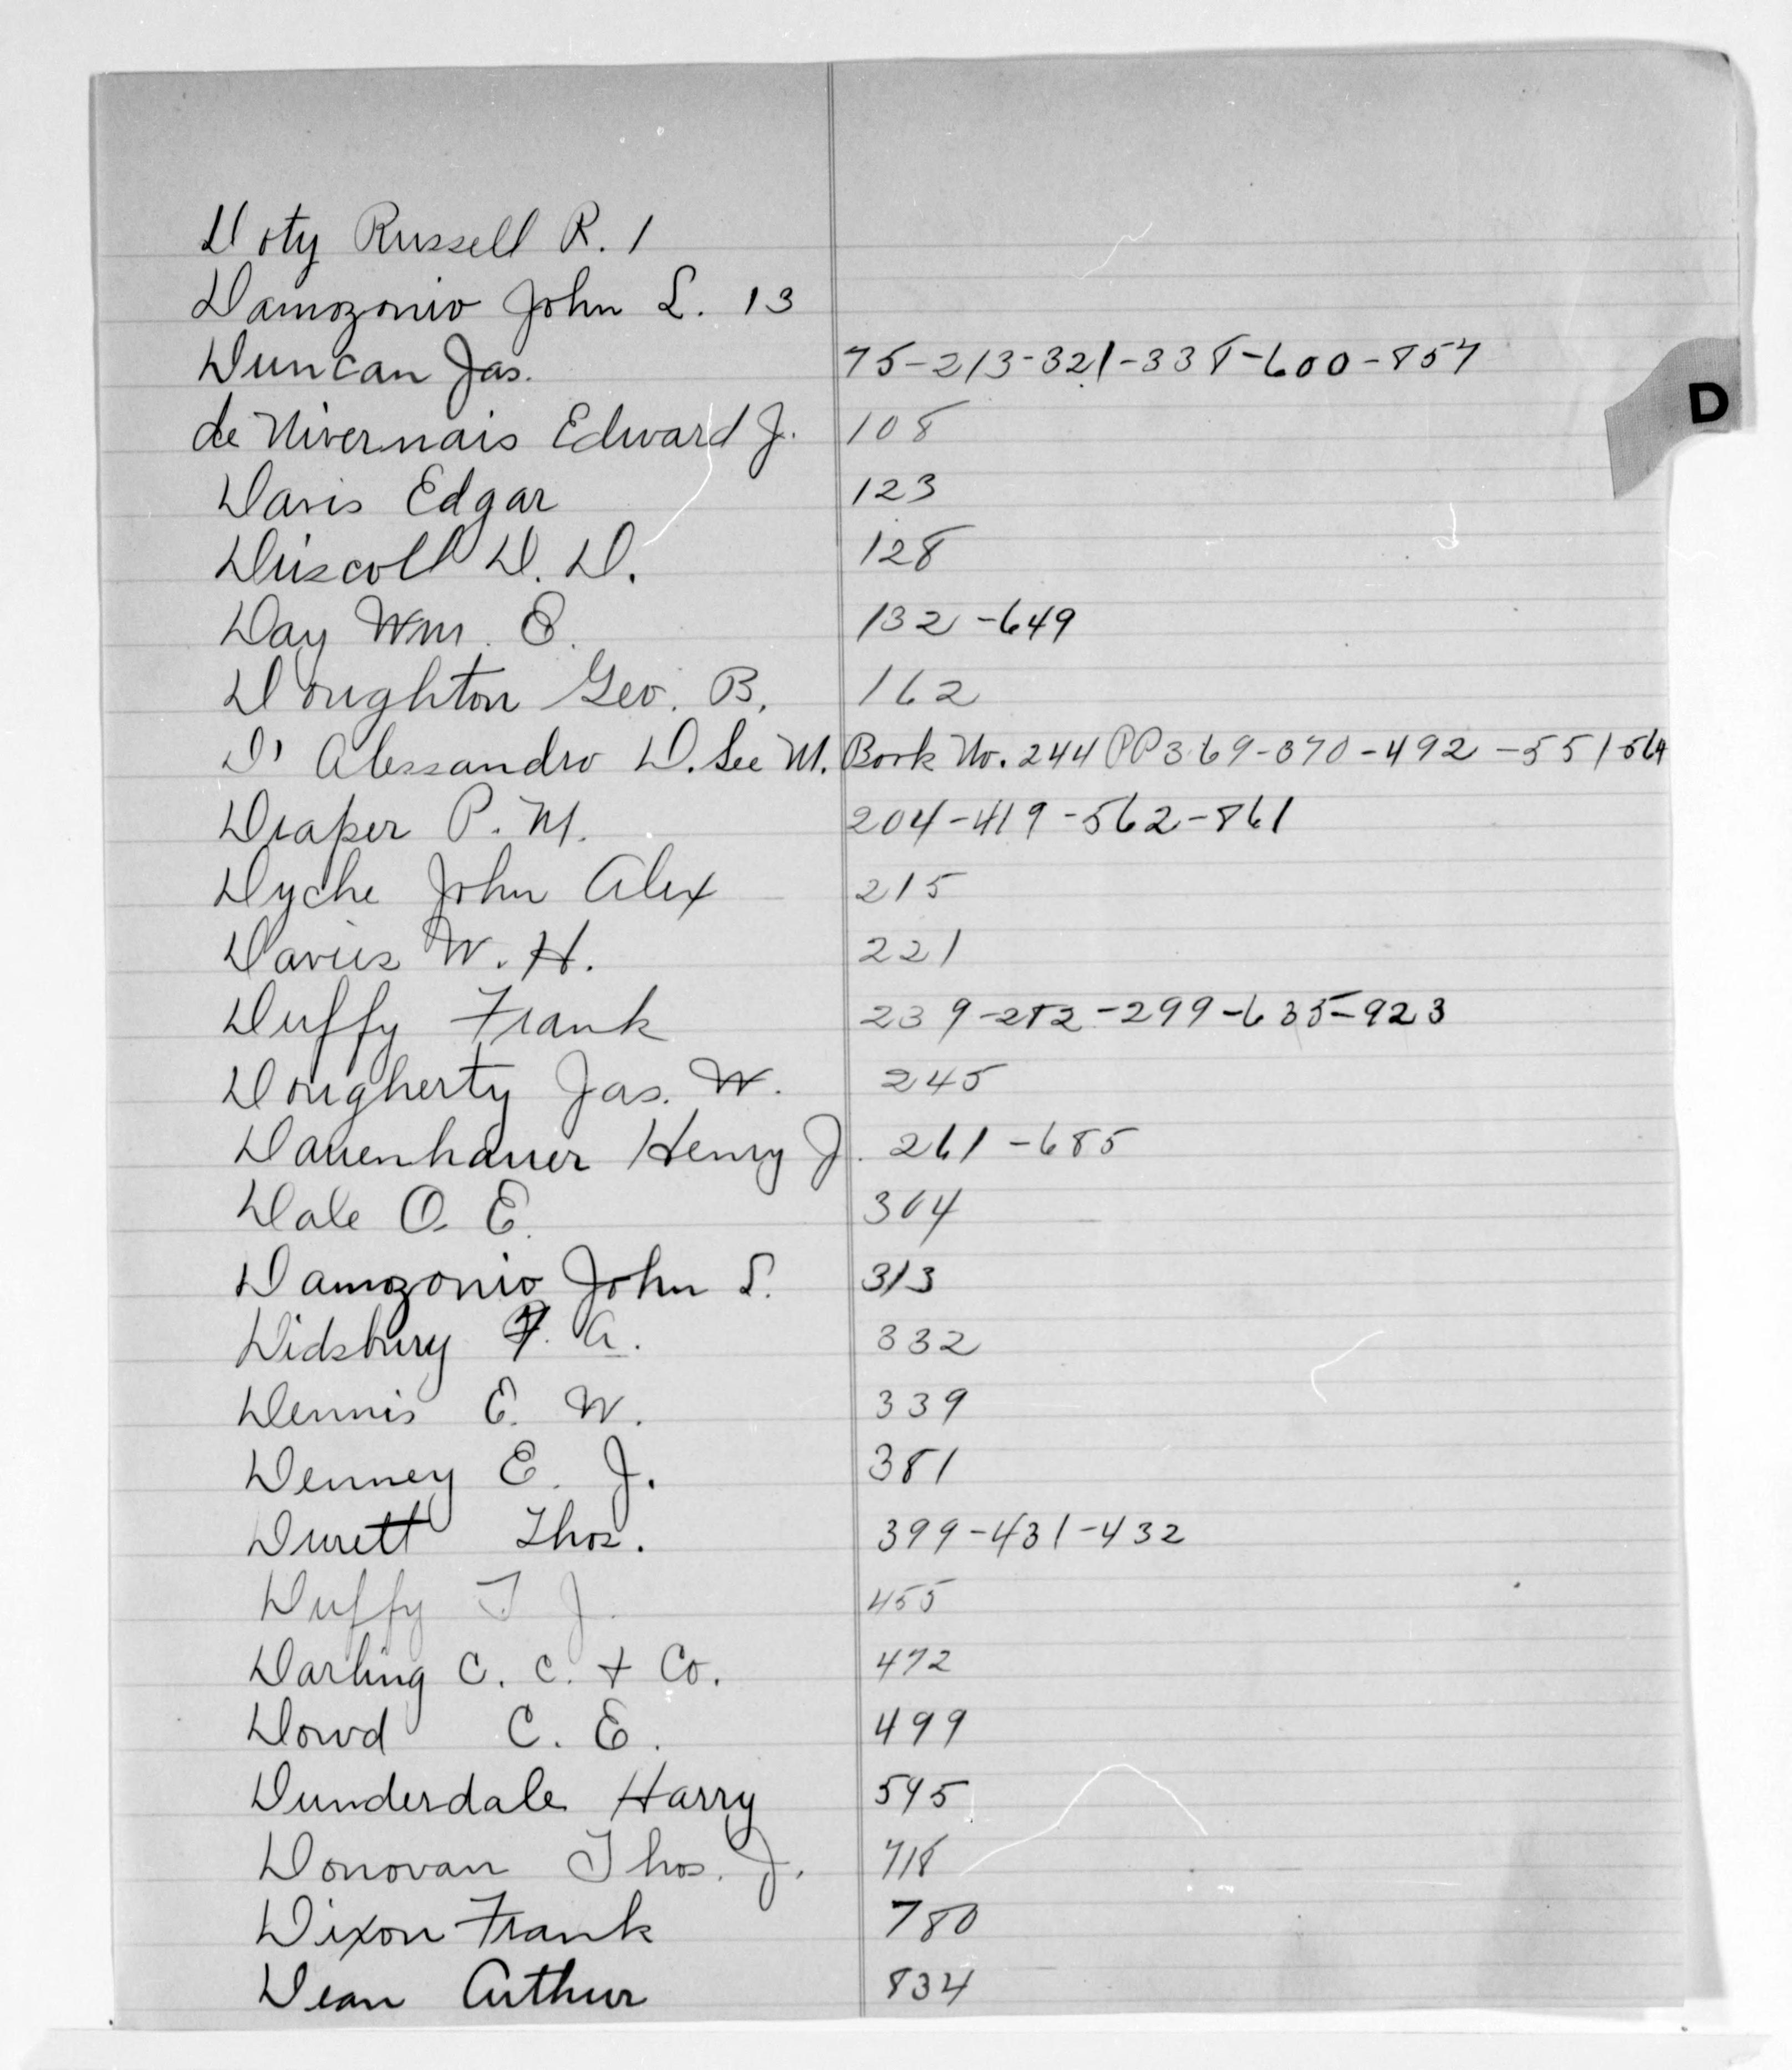 Doty Russell R. 1
Damozonio John L. 13
Duncan Jas. 75-213-321-338-600-857
D
de Nivernais Edward J. 108
Davis Edgar 123
Driscoll D. D. 128
Day Wm. E. 132-649
Doughton Geo. B. 162
D' Alessandro D. See M. Book No. 244 PP 369-370-492-551-564
Draper P. M. 204-419-562-861
Dyche John Alex 215
Davies W. H. 221
Duffy Frank 239-282-299-635-923
Dougherty Jas. W. 245
Dauenhauer Henry J. 261-685
Dale O. E. 304
Damozonio John L. 313
Didsbury F. A. 332
Dennis E. W. 339
Denney E. J. 381
Durett Thos. 399-431-432
Duffy T J. 455
Darling C. C. + Co. 472
Dowd C. E. 499
Dunderdale Harry 595
Donovan Thos. J. 718
Dixon Frank 780
Dean Arthur 834